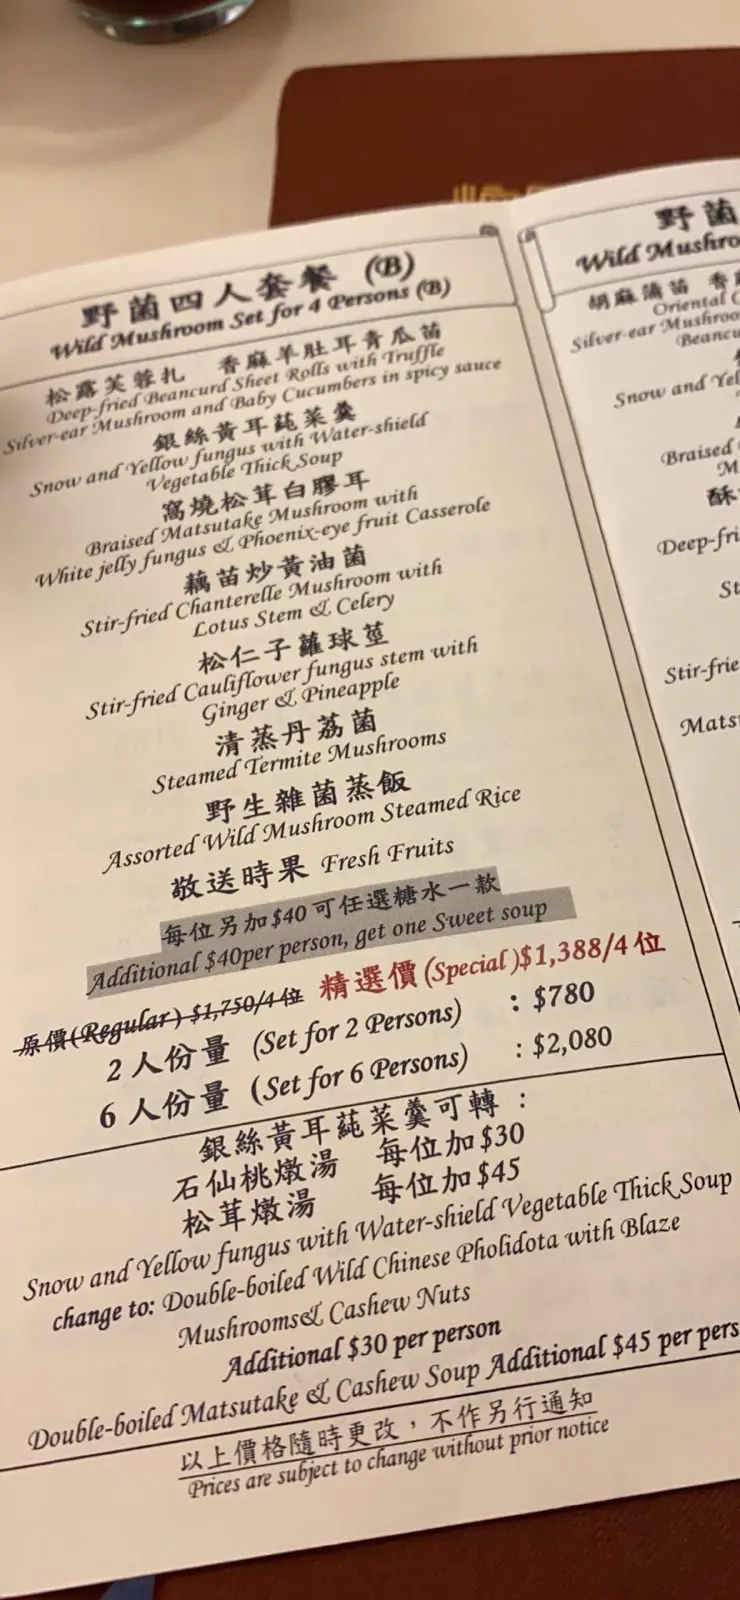 野菌四人套餐 (B)
Wild Mushroom Set for 4 Persons (B)
松露芙蓉扎 香麻羊肚耳青瓜苗
Deep-fried Beancurd Sheet Rolls with Truffle
Silver-ear Mushroom and Baby Cucumbers in spicy sauce
銀絲黃耳蒓菜羹
Snow and Yellow fungus with Water-shield
Vegetable Thick Soup
窩燒松茸白膠耳
Braised Matsutake Mushroom with
White jelly fungus & Phoenix-eye fruit Casserole
藕苗炒黃油菌
Stir-fried Chanterelle Mushroom with
Lotus Stem & Celery
松仁子蘿球莖
Stir-fried Cauliflower fungus stem with
Ginger & Pineapple
清蒸丹荔菌
Steamed Termite Mushrooms
野生雜菌蒸飯
Assorted Wild Mushroom Steamed Rice
敬送時果 Fresh Fruits
每位另加$40可任選糖水一款
Additional $40per person, get one Sweet soup
原價(Regular) $1,750/4位 精選價(Special)$1,388/4位
2人份量 (Set for 2 Persons) : $780
6人份量 (Set for 6 Persons) : $2,080
銀絲黃耳蒓菜羹可轉：
石仙桃燉湯 每位加$30
松茸燉湯 每位加$45
Snow and Yellow fungus with Water-shield Vegetable Thick Soup
change to: Double-boiled Wild Chinese Pholidota with Blaze
Mushrooms& Cashew Nuts
Additional $30 per person
Double-boiled Matsutake & Cashew Soup Additional $45 per pers
以上價格隨時更改，不作另行通知
Prices are subject to change without prior notice
野菌
Wild Mushro
胡麻蒲苗
Oriental
Silver-ear Mushroo
Beancu
Snow and Yel
Braised
M
酥
Deep-fri
St
Stir-frie
Mats